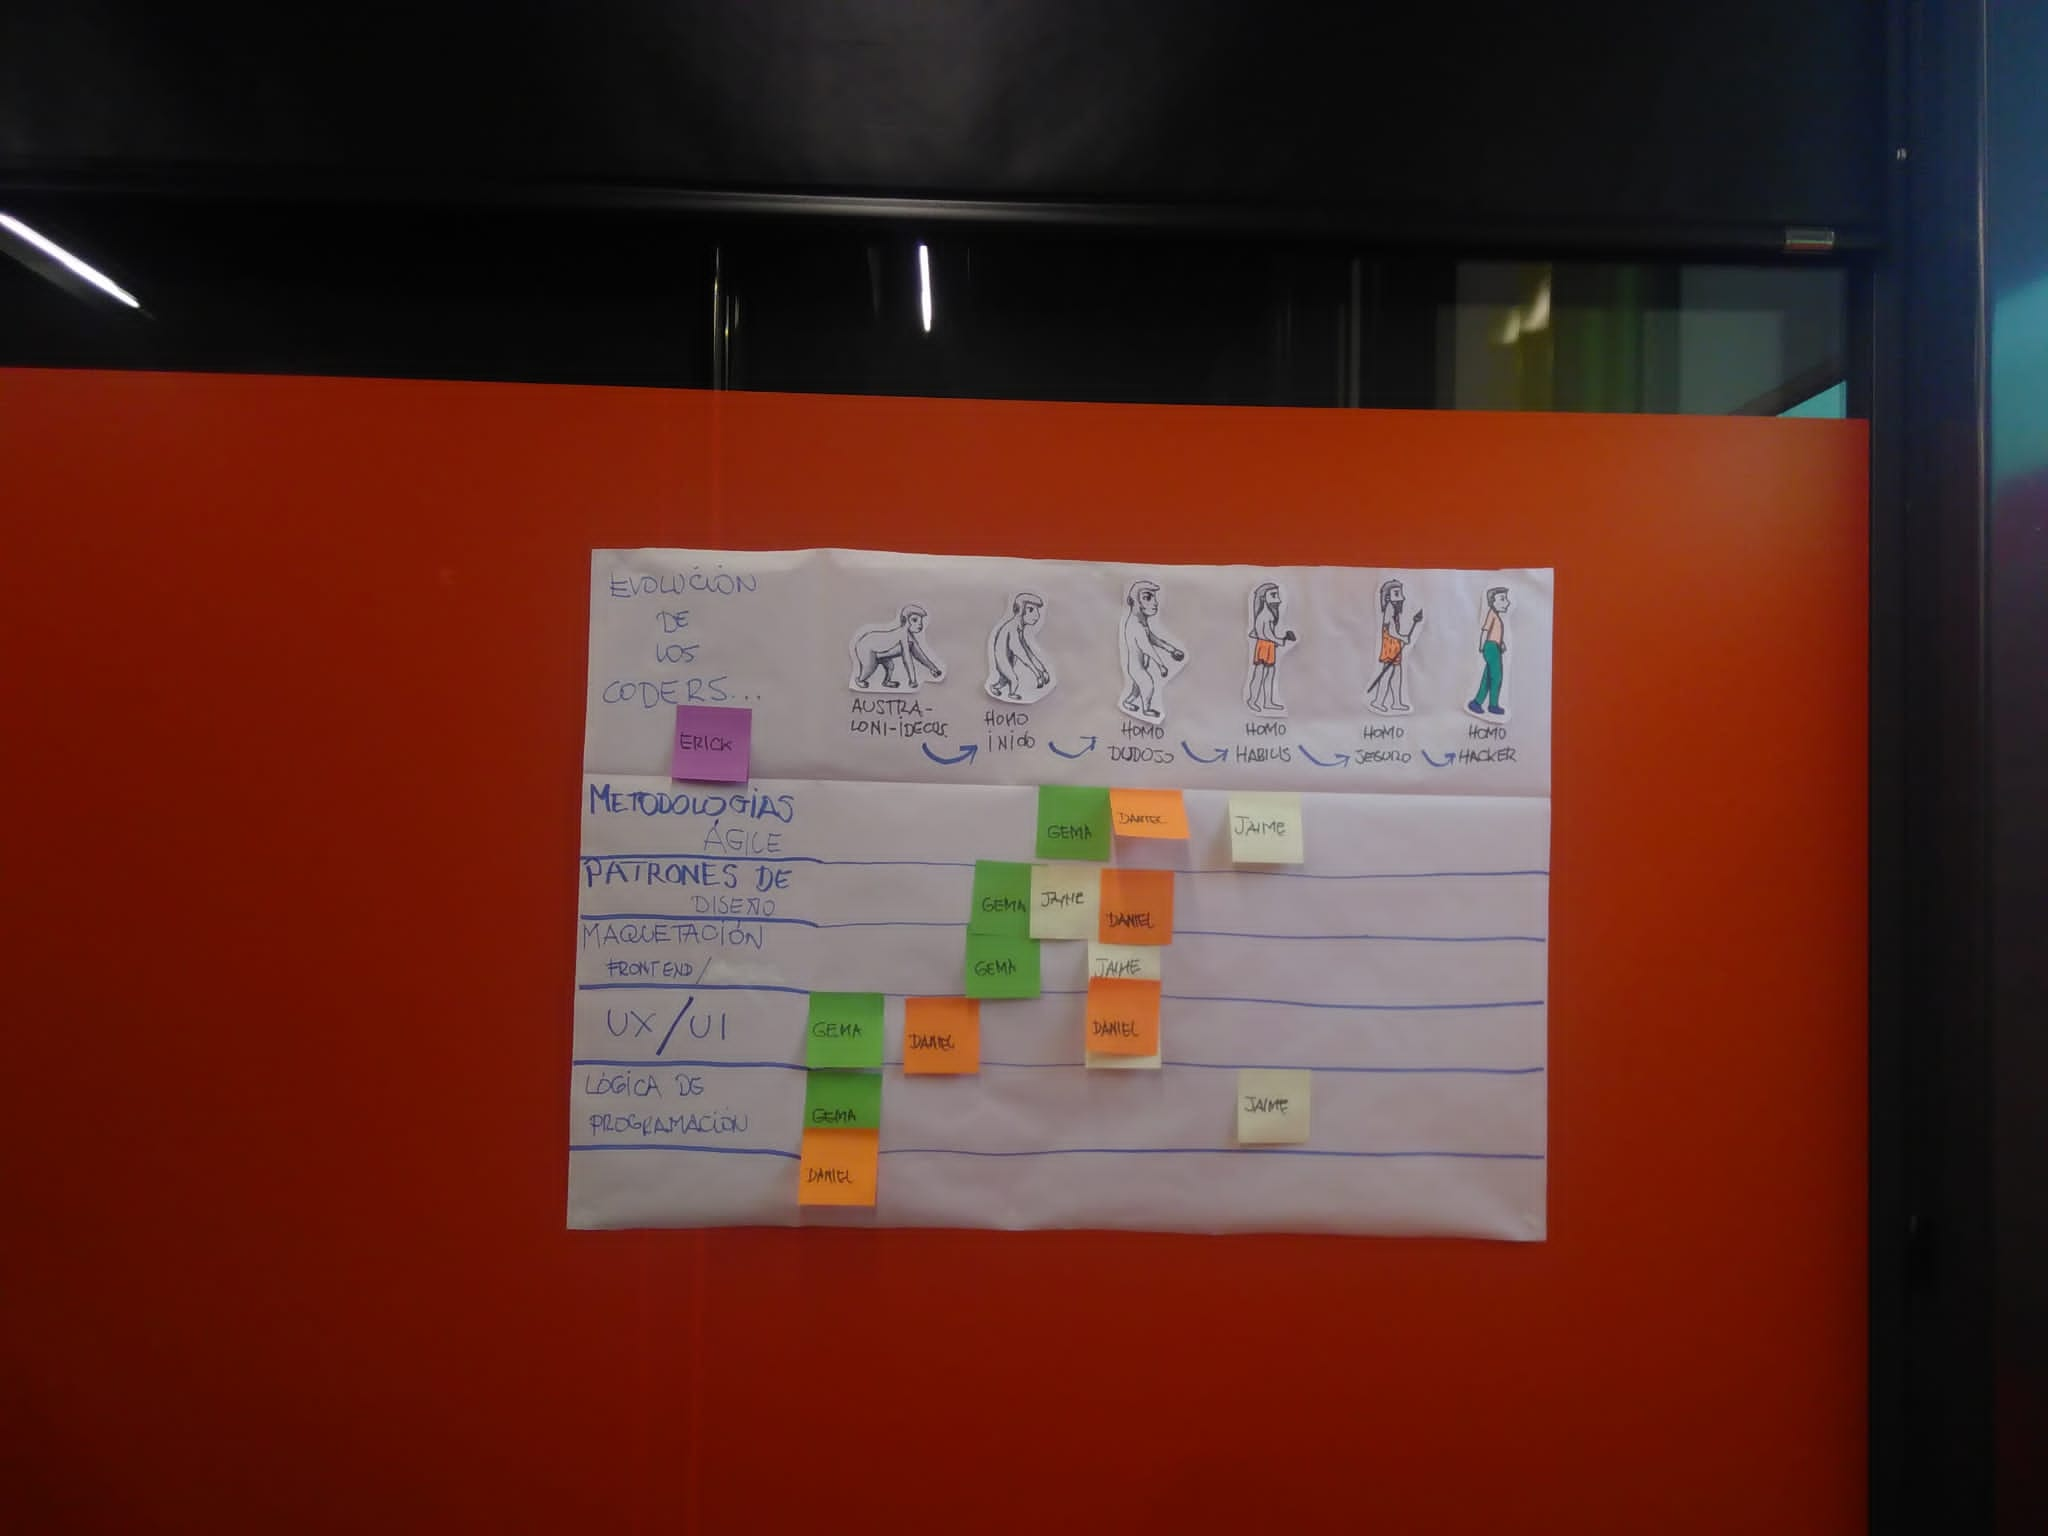 EVOLUCIÓN
DE
LOS
CODERS...
ERICK
AUSTRA-
LONI-IDEOUS.
HOMO
INICIO
HOMO
DUDOSO
HOMO
HABILIS
HOMO
SEGURO
HOMO
HACKER
METODOLOGÍAS
ÁGILE
GEMA
DANIEL
JAIME
PATRONES DE
DISEÑO
GEMA
JAIME
DANIEL
MAQUETACIÓN
FRONTEND/
GEMA
JAIME
DANIEL
UX/UI
GEMA
DANIEL
LÓGICA DE
PROGRAMACIÓN
GEMA
JAIME
DANIEL